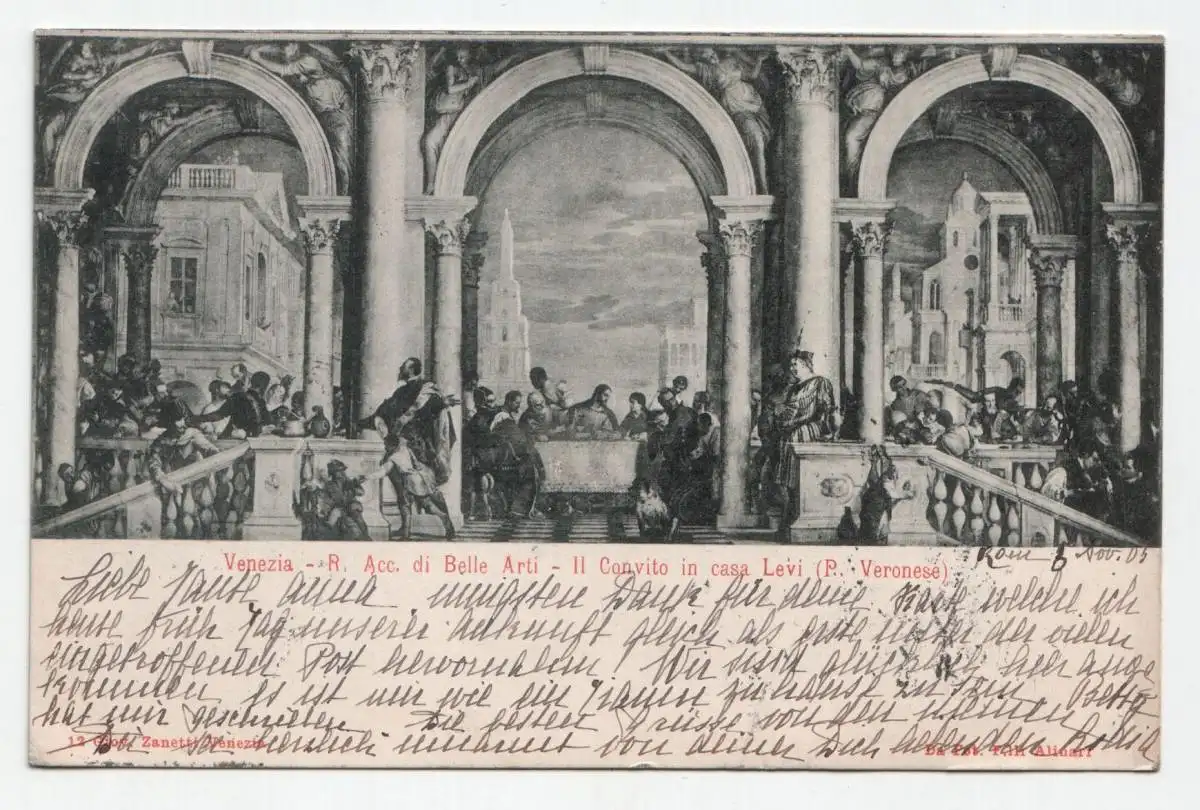 Venezia - R. Acc. di Belle Arti - Il Convito in casa Levi (P. Veronese)
Rom 8 Nov. 05
Liebe Tante Anna innigsten Dank für deine Karte welche ich
heute früh Tag unserer Ankunft gleich als erste unter der vielen
eingetroffenen Post Wir sind glücklich hier ange
kommen es ist mir wie ein zu hause zu sein
hat mir geschrieben Die besten Grüsse von den meinen
herzlich umarmt von deiner Dich liebenden
12 Giov. Zanetti Venezia
Da Fot. F.lli Alinari